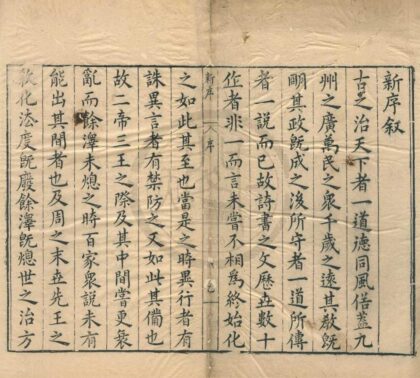 新序叙
古之治天下者一道德同風俗蓋九
州之廣萬民之衆千歲之遠其敎旣
明其政旣成之後所守者一道所傳
者一說而已故詩書之文歷世數十
作者非一而言未嘗不相爲終始化
新序 序
之如此其至也當是之時異行者有
誅異言者有禁防之又如此其備也
故二帝三王之際及其中間嘗更衰
亂而餘澤未熄之時百家衆說未有
能出其間者也及周之末世先王之
敎化法度旣廢餘澤旣熄世之治方